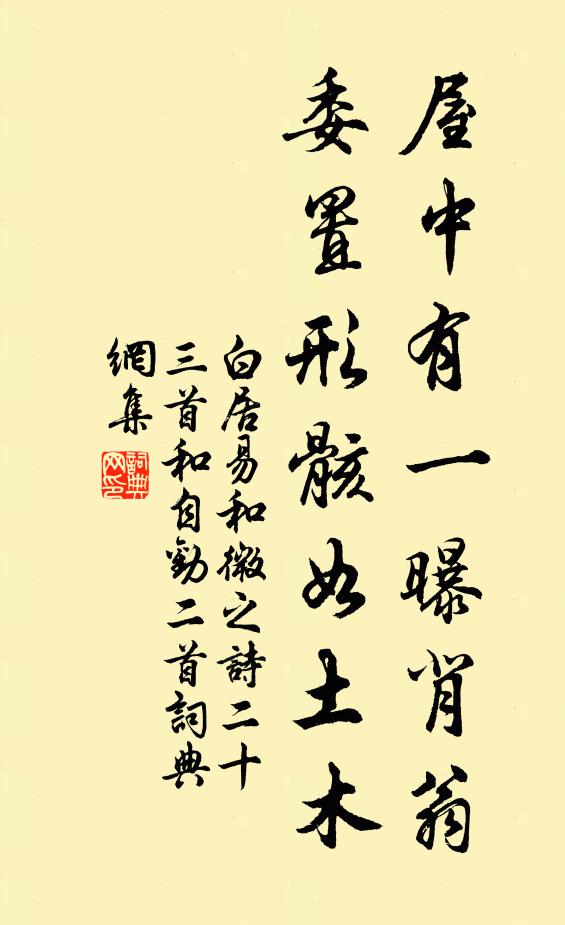 屋中有一曝背翁
委置形骸如土木
白居易和微之詩二十
三首和自勸二首詞典
網集
詞典
网印